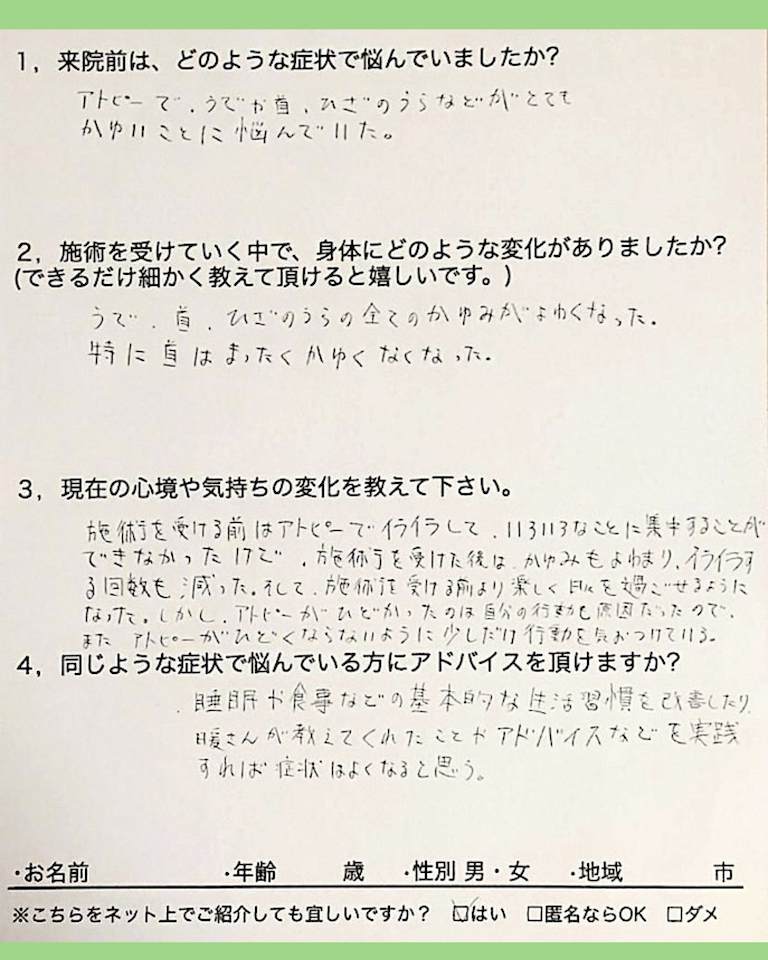 1，来院前は、どのような症状で悩んでいましたか?
アトピーで、うでや首、ひざのうらなどがとても
かゆいことに悩んでいた。
2，施術を受けていく中で、身体にどのような変化がありましたか?
(できるだけ細かく教えて頂けると嬉しいです。)
うで、首、ひざのうらの全てのかゆみがよわくなった。
特に首はまったくかゆくなくなった。
3，現在の心境や気持ちの変化を教えて下さい。
施術を受ける前はアトピーでイライラして、いろいろなことに集中することが
できなかったけど、施術を受けた後は、かゆみもよわまり、イライラす
る回数も減った。そして、施術を受ける前より楽しく日々を過ごせるように
なった。しかし、アトピーがひどかったのは自分の行動も原因だったので、
また アトピーがひどくならないように少しだけ行動を気おつけている。
4，同じような症状で悩んでいる方にアドバイスを頂けますか?
睡眠や食事などの基本的な生活習慣を改善したり、
暖さんが教えてくれたことやアドバイスなどを実践
すれば症状はよくなると思う。
・お名前 ・年齢 歳 ・性別 男・女 ・地域 市
※こちらをネット上でご紹介しても宜しいですか? ☑はい □匿名ならOK □ダメ